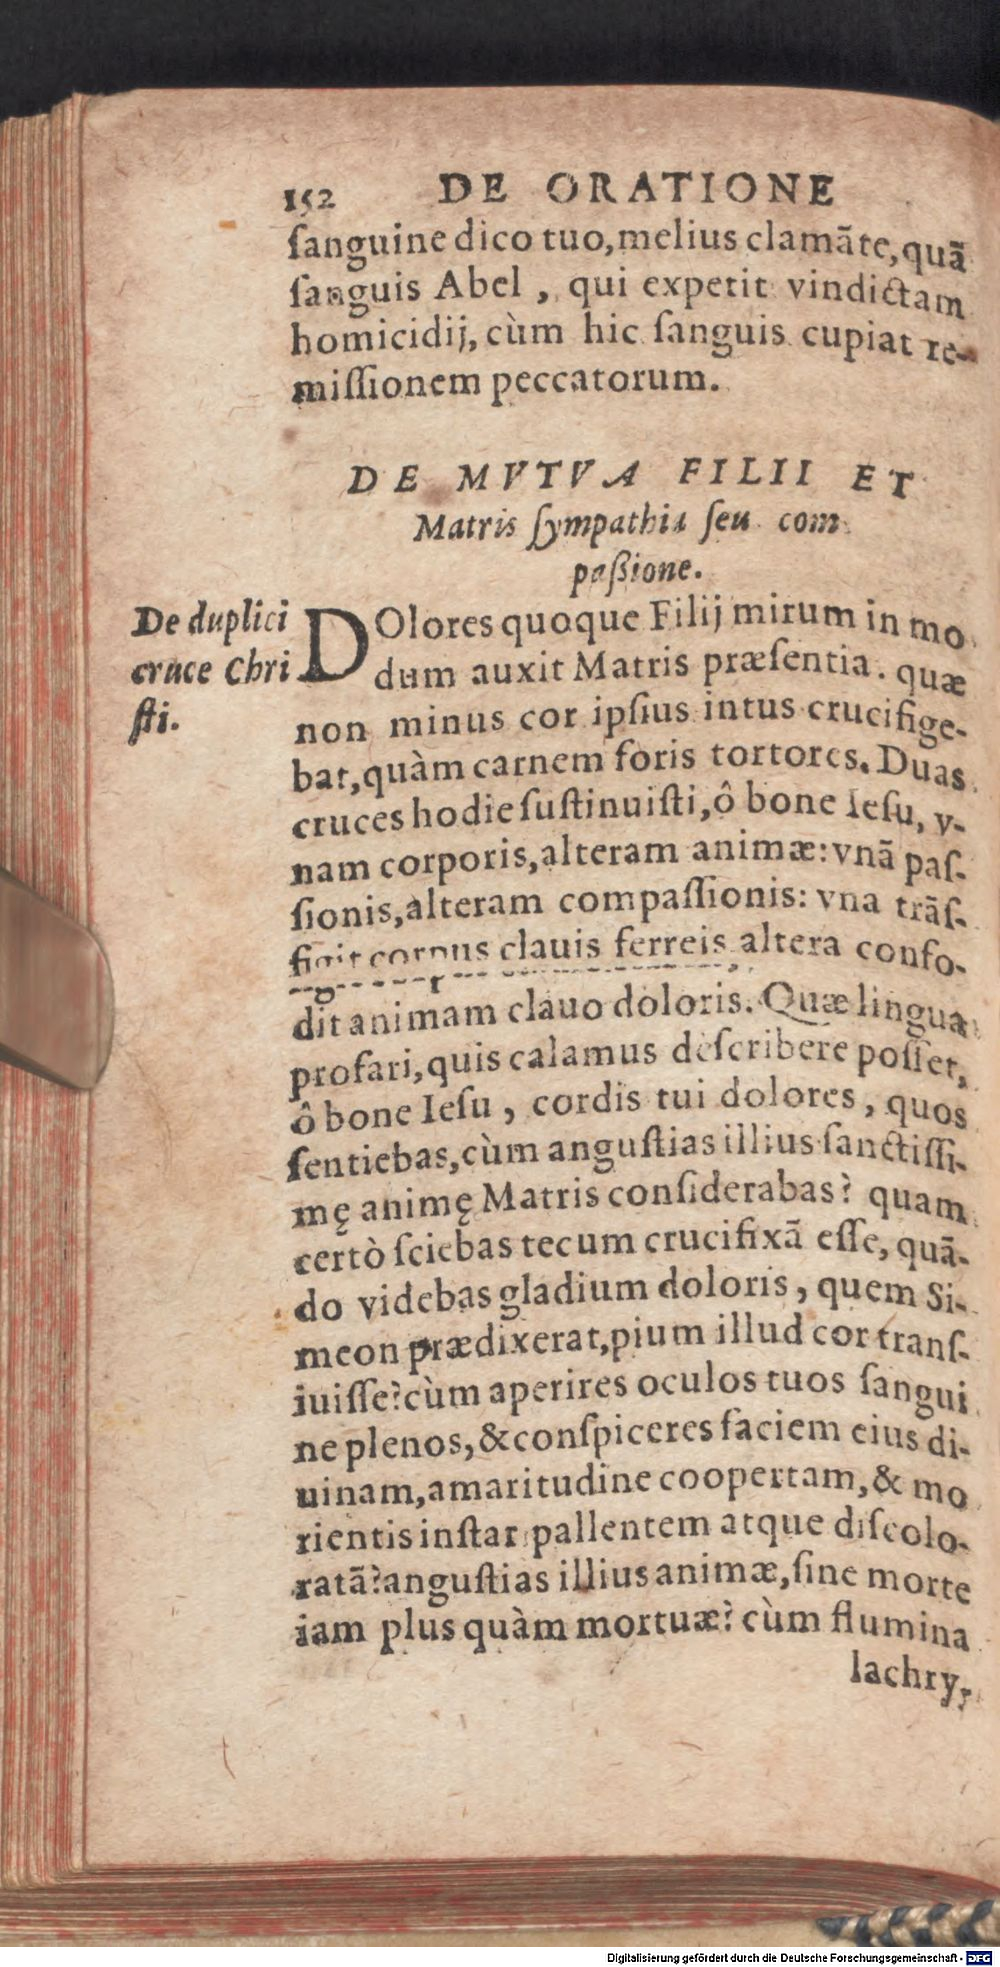 152 DE ORATIONE
ſanguine dico tuo, melius clamãte, quã
ſanguis Abel, qui expetit vindictam
homicidij, cùm hic ſanguis cupiat re-
miſſionem peccatorum.
DE MVTVA FILII ET
Matris ſympathia ſeu com
paßione.
De duplici
cruce Chri
ſti.
DOlores quoque Filij mirum in mo
dum auxit Matris præſentia. quæ
non minus cor ipſius intus crucifige-
bat, quàm carnem foris tortores. Duas
cruces hodie ſuſtinuiſti, ô bone Ieſu, v-
nam corporis, alteram animæ: vnã paſ-
ſionis, alteram compaſſionis: vna trãſ-
figit corpus clauis ferreis, altera confo-
dit animam clauo doloris. Quæ lingua
profari, quis calamus deſcribere poſſet,
ô bone Ieſu, cordis tui dolores, quos
ſentiebas, cùm anguſtias illius ſanctiſſi-
mę animę Matris conſiderabas? quam
certò ſciebas tecum crucifixã eſſe, quã-
do videbas gladium doloris, quem Si-
meon prædixerat, pium illud cor tranſ-
iuiſſe? cùm aperires oculos tuos ſangui
ne plenos, & conſpiceres faciem eius di-
uinam, amaritudine coopertam, & mo
rientis inſtar pallentem atque diſcolo-
ratã? anguſtias illius animæ, ſine morte
iam plus quàm mortuæ? cùm flumina
lachry,
Digitalisierung gefördert durch die Deutsche Forschungsgemeinschaft - DFG